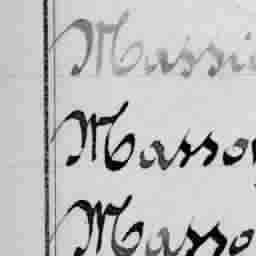 Massi
Masso
Masso